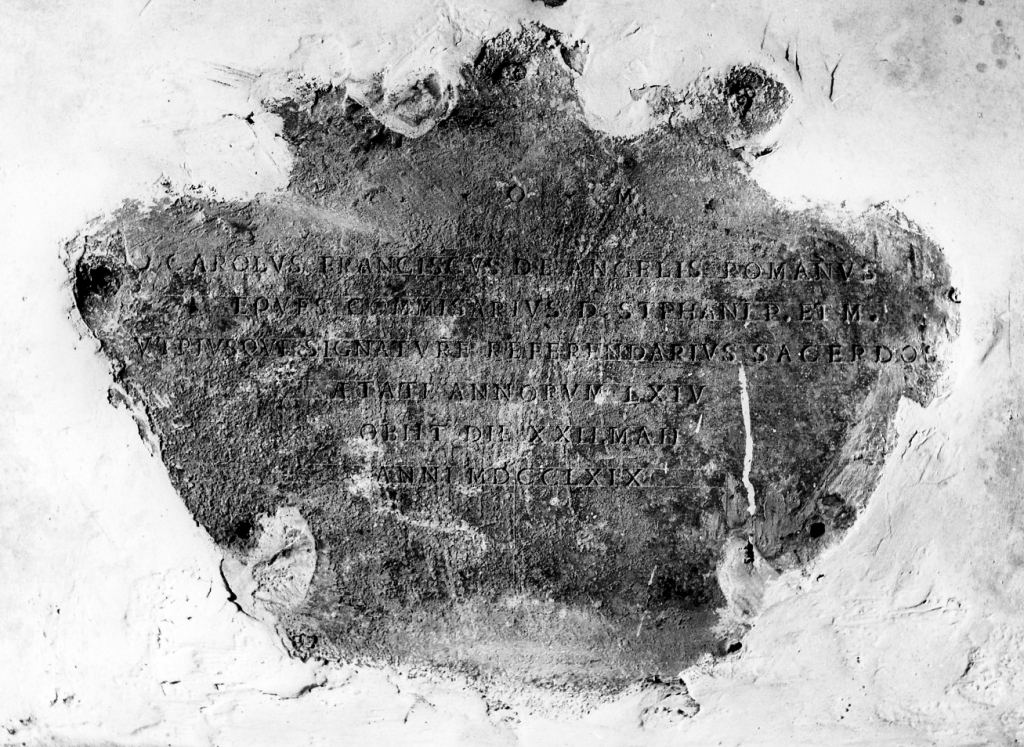 O M
CAROLVS FRANCISCVS DE ANGELIS ROMANVS
EQVES COMMISARIVS D. STEPHANI P. ET M.
VTRIVSQVE SIGNATVRE REFERENDARIVS SACERDOS
ÆTATE ANNORVM LXIV
OBIIT DIE XXII MAII
ANNI MDCCLXIX